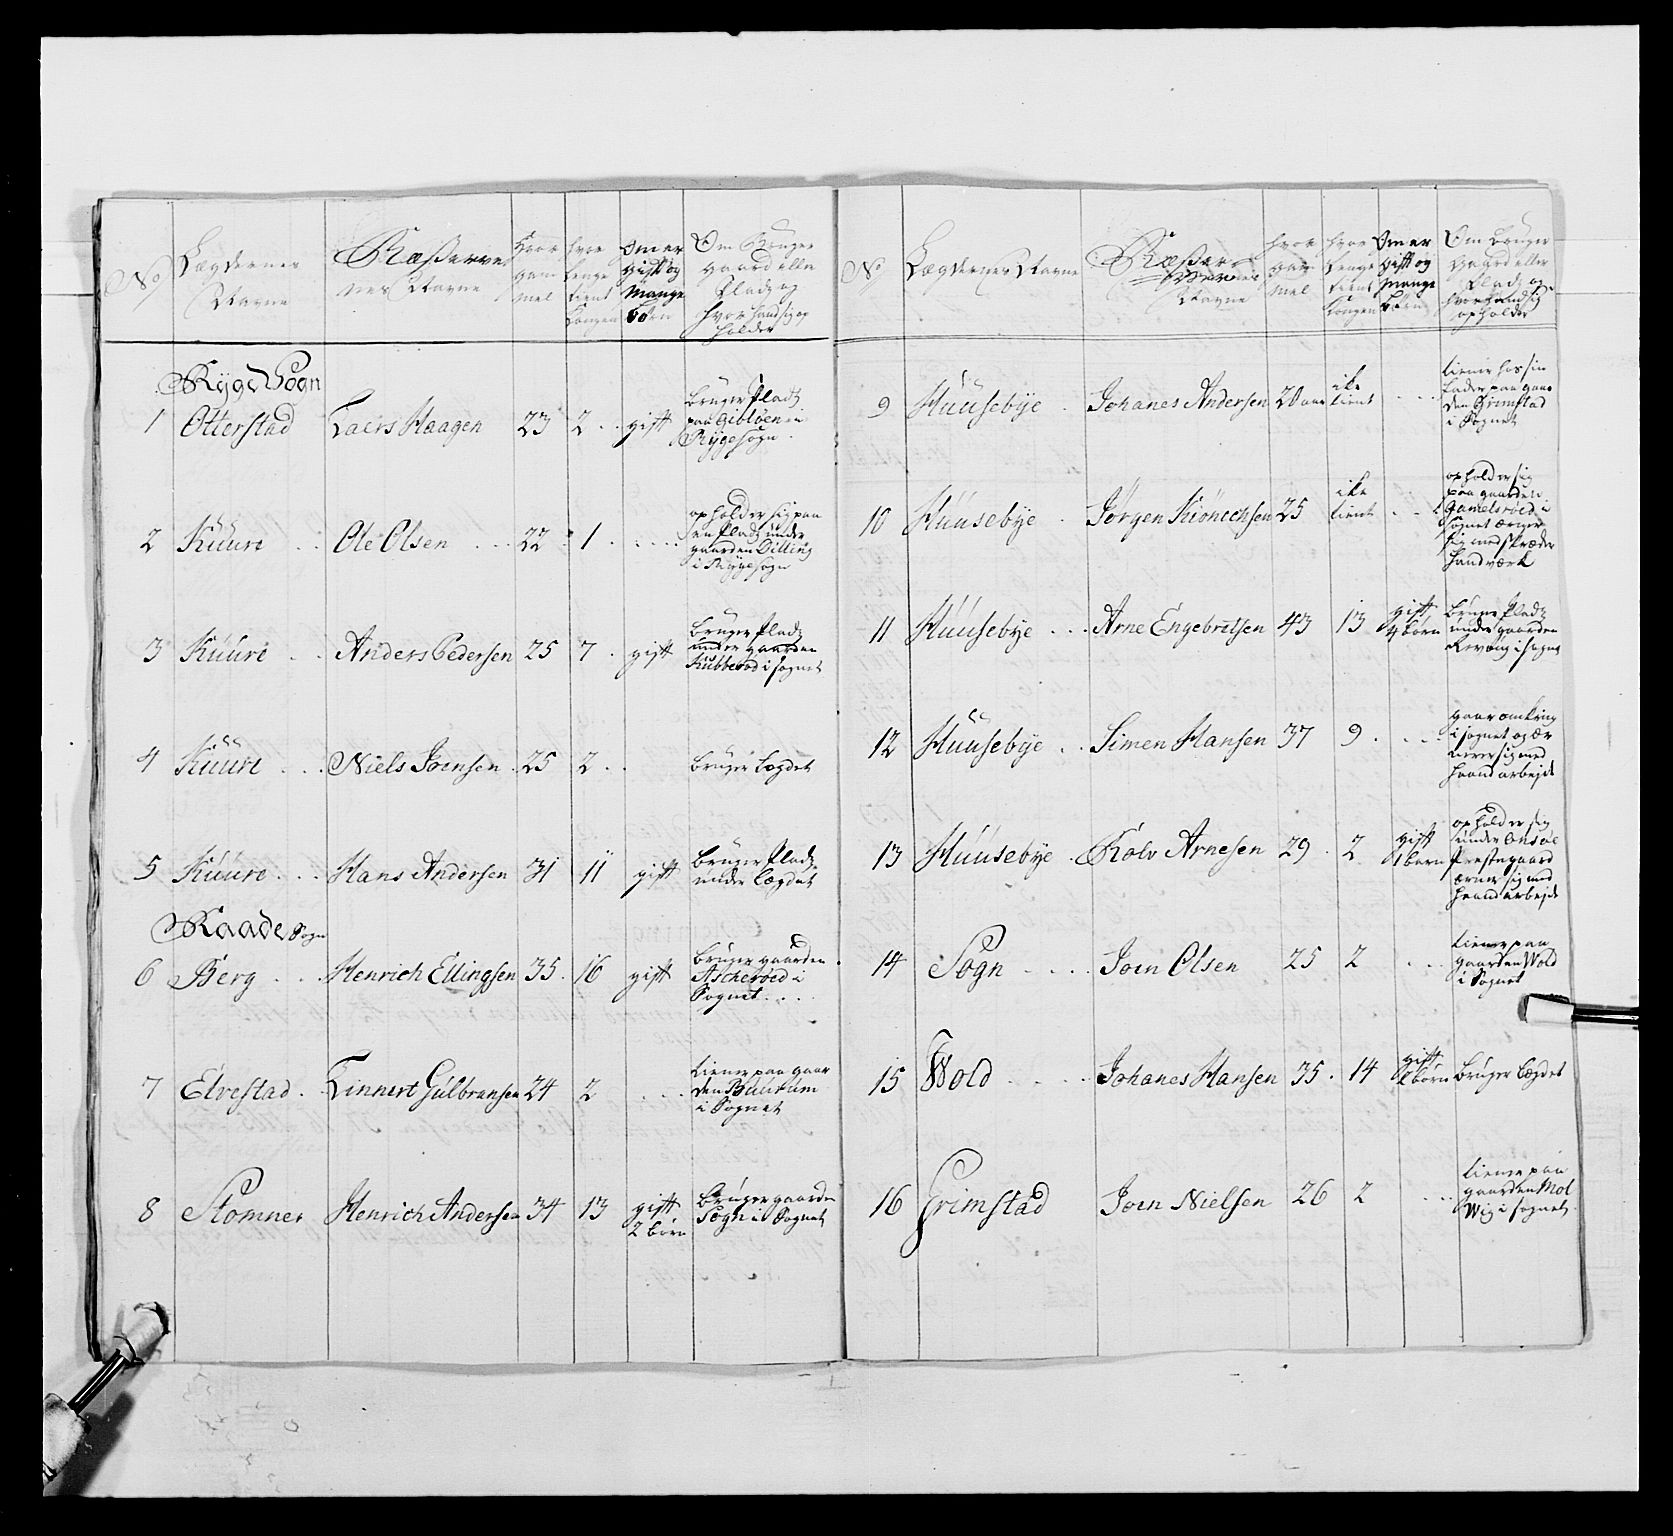 No
Lægdernes
Navne
Ræserve
nes Navne
Hvor
gam
mel
hvor
lenge
tient
Kongen
Om er
gift og
Mange
børn
Om Bruger
gaard eller
Plads og
hvor hand sig op
holder
Ryge Sogn
1 Otterstad Laers Haagen 23 2 gift
Bruger Plads
paa Gibløen i
Ryge sogn
2 Kuure Ole Olsen 22 1
opholder sig paa
en Plads under
gaarden Dilling
i Ryge sogn
3 Kuure Anders Pedersen 25 7 gift
Bruger Plads
under gaarden
Kubberød i sognet
4 Kuure Niels Joensen 25 2 bruger Lægdet
5 Kuure Hans Andersen 31 11 gift
Bruger Plads
under Lægdet
Raade Sogn
6 Berg Henrich Ellingsen 35 16 gift
bruger gaarden
Ascherød i
Sognet
7 Elvestad Linnert Gulbransen 24 2
tiener paa gaar
den Buurum
i Sognet
8 Stomner Henrich Andersen 34 13 gift
2 børn
Bruger gaarden
Sogn i Sognet
No
Lægdernes Navne
Ræser
Navne
hvor
gam
mel
hvor
lenge
tient
Kongen
Om er
gift og
mange
børn
Om Bruger
Gaard eller
Plads og
hvor hand sig
opholder
9 Huusebye Johanes Andersen 20 aar
ike
tient
tiener hos sin
fader paa gaar
den Grimstad
i Sognet
10 Huusebye Jørgen 25
ike
tient
opholder sig
paa gaarden
Gamelsrød i
sognet ærner
sig med skræder
handværk
11 Huusebye Arne Engebretsen 43 13
gift
4 børn
bruger Plads
under gaarden
i sognet
12 Huusebye Simen Hansen 37 9
gaar omkring
i sognet og ær
nerer sig med
haand arbejde
13 Huusebye Kolv Arnesen 29 2
gift
1 barn
opholder sig
under Onsøe
Prestegaard
ærner sig med
haand arbejde
14 Sogn Joen Olsen 25 2
tiener paa
gaarden Wold
i Sognet
15 Wold Johanes Hansen 35 14
gift
børn
bruger Lægdet
16 Grimstad Joen Nielsen 26 2
tiener paa
gaarden Mol
Wig i sognet